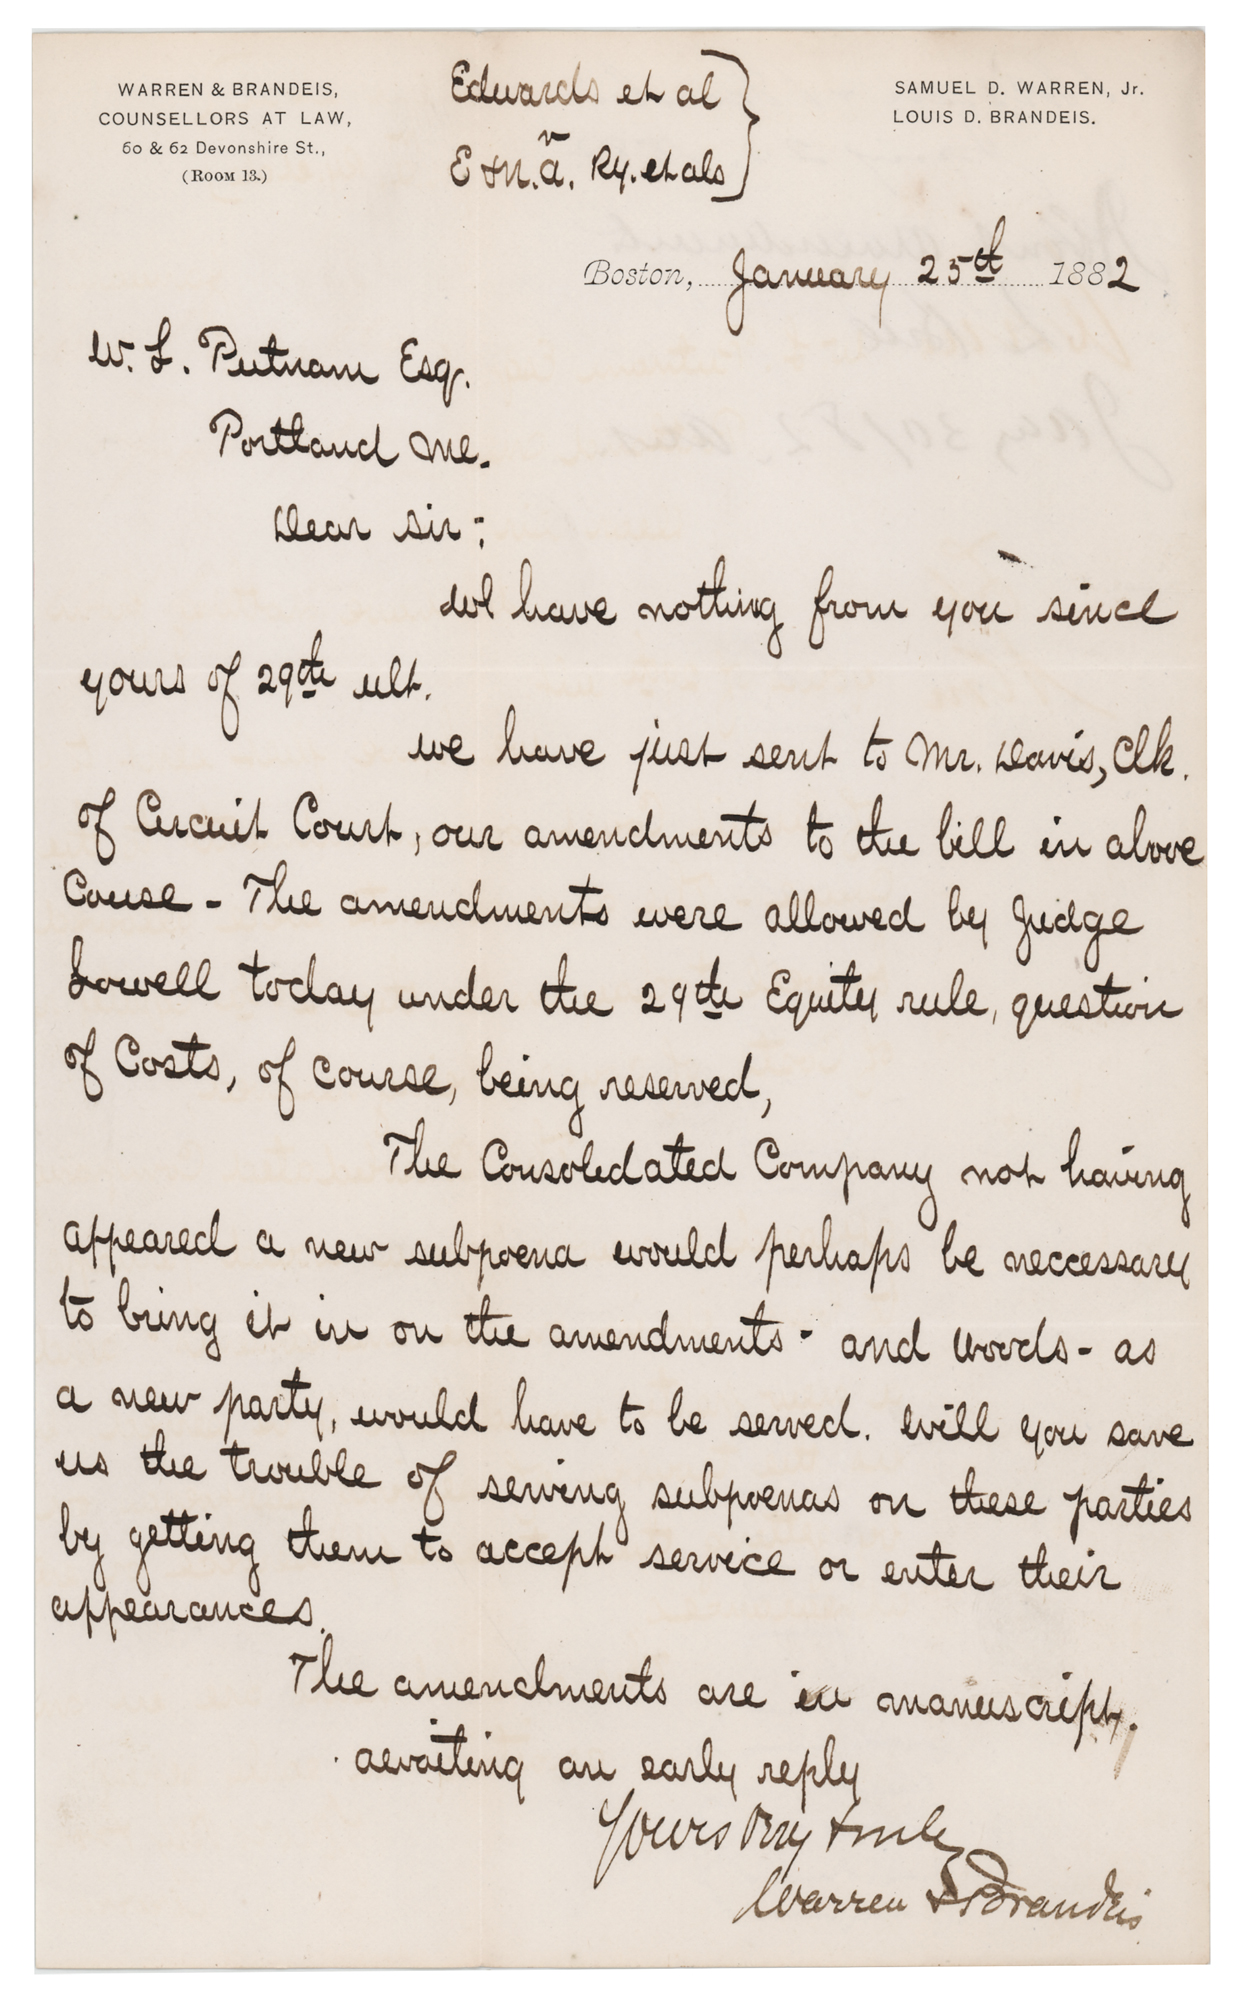 WARREN & BRANDEIS,
COUNSELLORS AT LAW,
60 & 62 Devonshire St.,
(Room 13.)
Edwards et al
v
E & N. A. Ry. et als
SAMUEL D. WARREN, Jr.
LOUIS D. BRANDEIS.
Boston, January 25th 1882
W. L. Putnam Esq.
Portland Me.
Dear Sir:
We have nothing from you since
yours of 29th ult.
We have just sent to Mr. Davis, Clk.
of Circuit Court, our amendments to the bill in above
Cause - The amendments were allowed by Judge
Lowell today under the 29th Equity rule, question
of Costs, of course, being reserved,
The Consolidated Company not having
appeared a new subpoena would perhaps be neccessary
to bring it in on the amendments - and Woods - as
a new party, would have to be served. Will you save
us the trouble of serving subpoenas on these parties
by getting them to accept service or enter their
appearances.
The amendments are in manuscript.
Awaiting an early reply
Yours Very truly
Warren & Brandeis